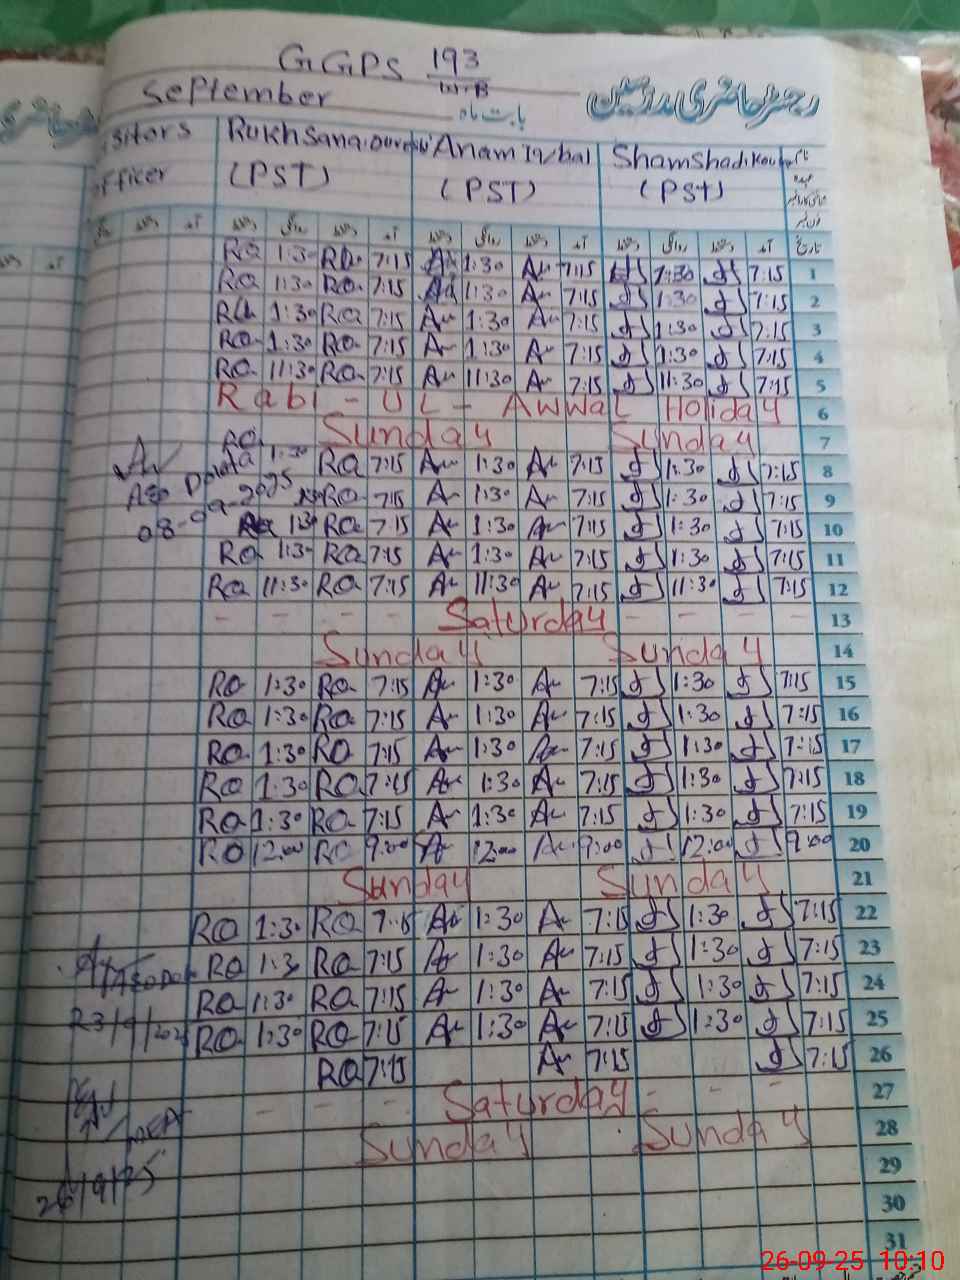 GGPS 193
W-B
September
بابت ماہ
رجسٹر حاضری مدرسین
Rukhsana Anam Iqbal Shamshad Kou
officer (PST) (PST) (PST)
آمد دستخط روانگی دستخط آمد دستخط روانگی دستخط آمد تاریخ
RQ 1:30 RQ 7:15 An 1:30 An 7:15 1:30 7:15 1
RQ 1:30 RQ 7:15 An 1:30 An 7:15 1:30 7:15 2
RQ 1:30 RQ 7:15 An 1:30 An 7:15 1:30 7:15 3
RQ 1:30 RQ 7:15 An 1:30 An 7:15 1:30 7:15 4
RQ 11:30 RQ 7:15 An 11:30 An 7:15 11:30 7:15 5
Rabi - UL - Awwal Holiday 6
Sunday Sunday 7
RQ 1:30 RQ 7:15 An 1:30 An 7:15 1:30 7:15 8
RQ 7:15 An 1:30 An 7:15 1:30 7:15 9
08-09-2025 1:30 RQ 7:15 An 1:30 An 7:15 1:30 7:15 10
RQ 1:30 RQ 7:15 An 1:30 An 7:15 1:30 7:15 11
RQ 11:30 RQ 7:15 An 11:30 An 7:15 11:30 7:15 12
- - - - Saturday - - - - 13
Sunday Sunday 14
RQ 1:30 RQ 7:15 An 1:30 An 7:15 1:30 7:15 15
RQ 1:30 RQ 7:15 An 1:30 An 7:15 1:30 7:15 16
RQ 1:30 RQ 7:15 An 1:30 An 7:15 1:30 7:15 17
RQ 1:30 RQ 7:15 An 1:30 An 7:15 1:30 7:15 18
RQ 1:30 RQ 7:15 An 1:30 An 7:15 1:30 7:15 19
RQ 12:00 RQ 9:00 An 12:00 An 9:00 12:00 9:00 20
Sunday Sunday 21
RQ 1:30 RQ 7:15 An 1:30 An 7:15 1:30 7:15 22
RQ 1:30 RQ 7:15 An 1:30 An 7:15 1:30 7:15 23
RQ 1:30 RQ 7:15 An 1:30 An 7:15 1:30 7:15 24
RQ 1:30 RQ 7:15 An 1:30 An 7:15 1:30 7:15 25
RQ 7:15 An 7:15 7:15 26
- - - Saturday - - - 27
Sunday Sunday 28
26/9/25 29
30
31
26-09-25 10:10